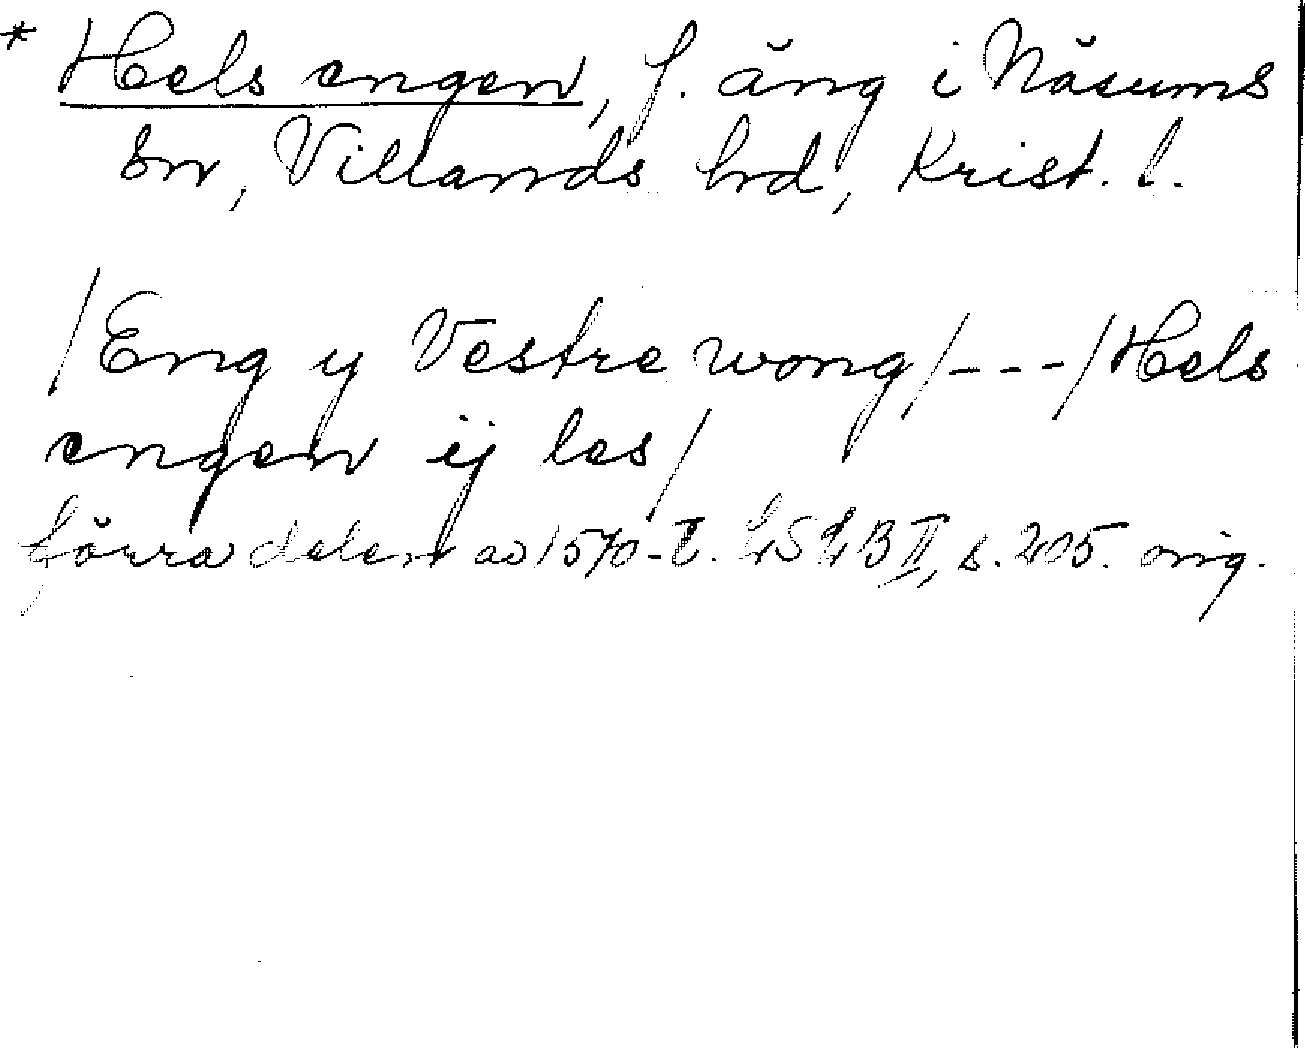 * Hels engen, f. äng i Näsums
sn, Villands hrd, Krist. l.
/Eng y Vestre wong/---/Hels
engen ij les/
förra delen av 1570-t. LSLB II, s. 205. orig.